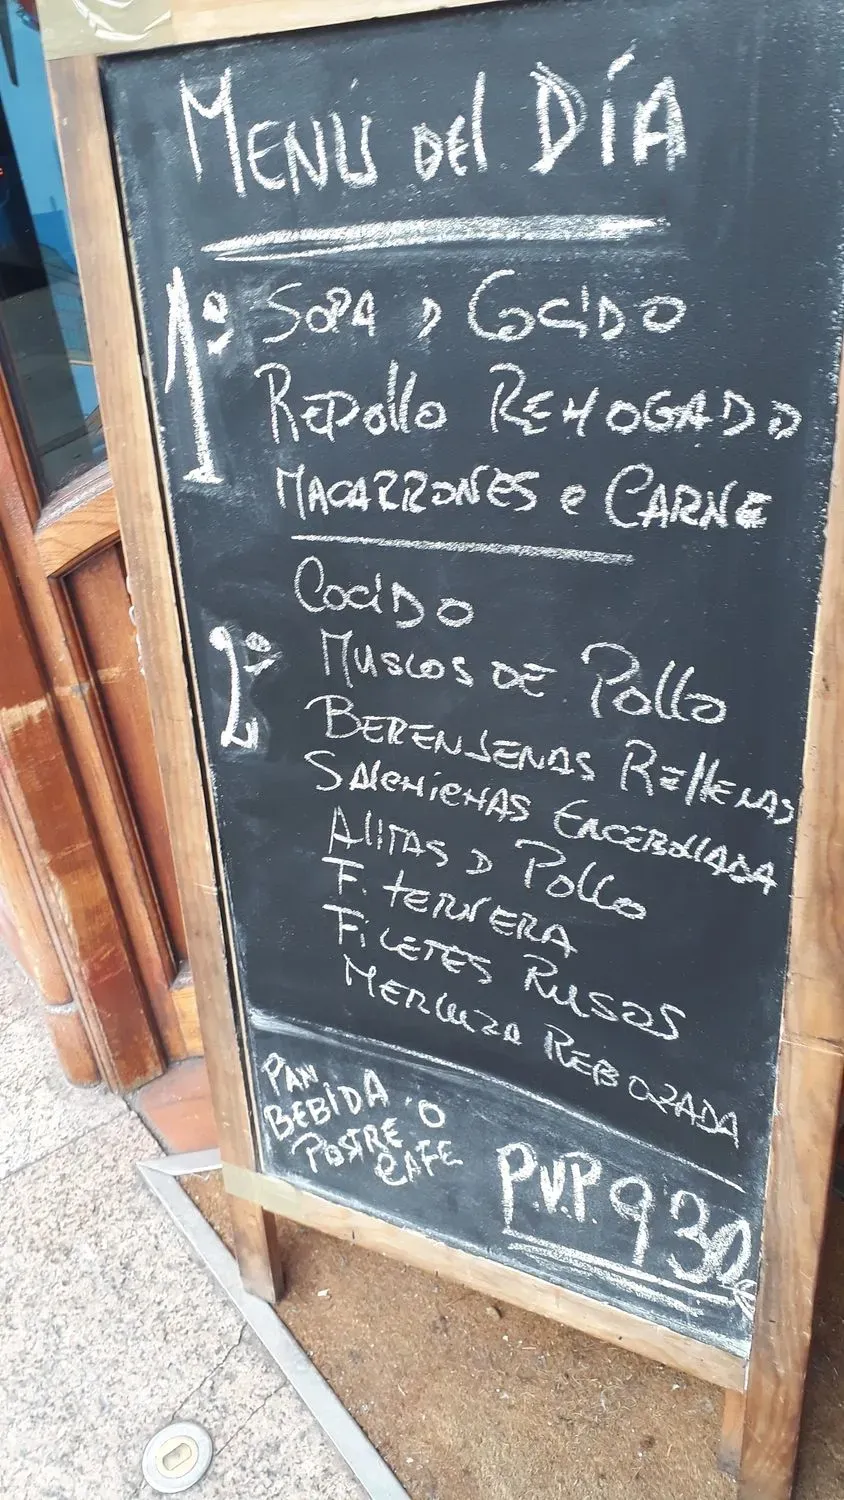 MENÚ DEL DÍA
1º SOPA D COCIDO
REPOLLO REHOGADO
MACARRONES C CARNE
COCIDO
2º MUSLOS DE POLLO
BERENJENAS RELLENAS
SALCHICHAS ENCEBOLLADA
ALITAS D POLLO
F. TERNERA
FILETES RUSOS
MERLUZA REBOZADA
PAN
BEBIDA
POSTRE O
CAFE
P.V.P. 930€